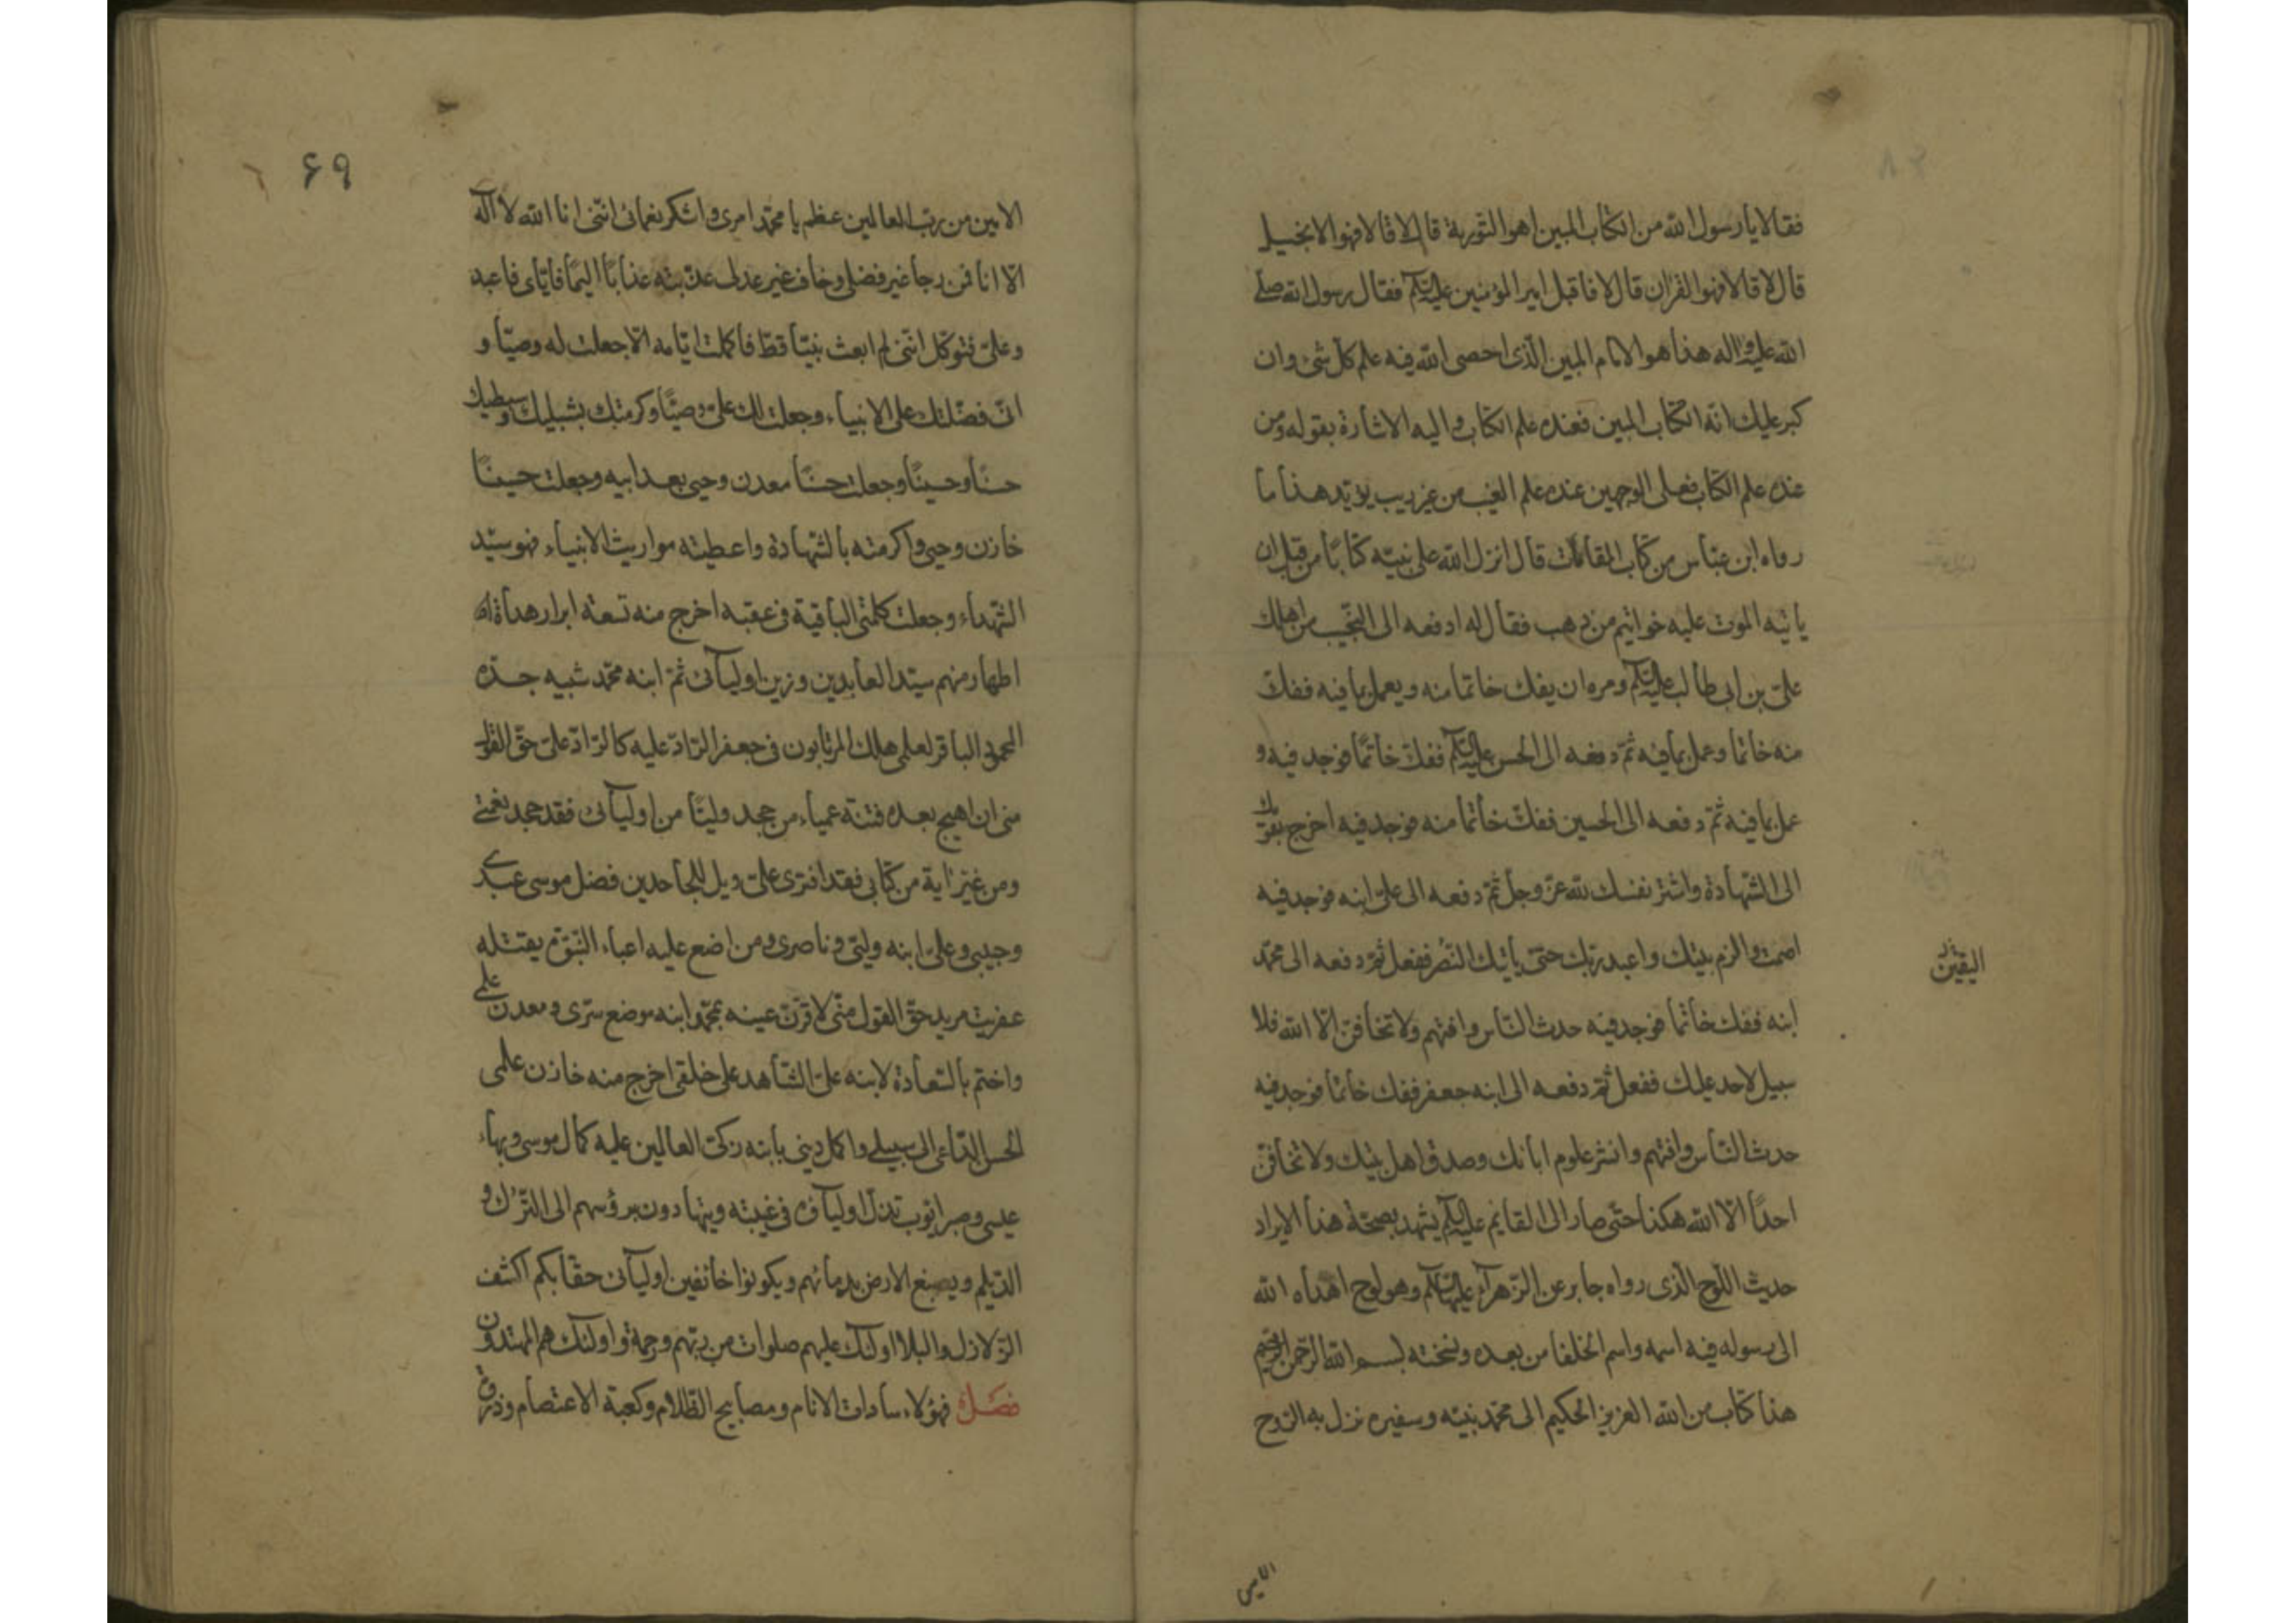 فقالا يا رسول الله من الكتاب المبين اهو التورية قال لا قالا فهو الانجيل
قال لا قالا فهو القران قال لا فاقبل امير المؤمنين عليه السلم فقال رسول الله صلى
الله عليه واله هذا هو الامام المبين الذى احصى الله فيه علم كل شئ وان
كبر عليك انه الكتاب المبين فعنده علم الكتاب واليه الاشارة بقوله ومن
عنده علم الكتاب فعلى الوجهين عنده علم الغيب من غير ريب يؤيد هذا ما
رواه ابن عباس من كتاب المقامات قال انزل الله على نبيه كتابا من قبل ان
ياتيه الموت عليه خواتيم من ذهب فقال له ادفعه الى النجيب من اهلك
على بن ابى طالب عليه السلم ومره ان يفك خاتما منه ويعمل بما فيه ففك
منه خاتما وعمل بما فيه ثم دفعه الى الحسن عليه السلم ففك خاتما فوجد فيه و
عمل بما فيه ثم دفعه الى الحسين ففك خاتما منه فوجد فيه اخرج بقومك
الى الشهادة واشتر نفسك لله عز وجل ثم دفعه الى على ابنه فوجد فيه
اصمت والزم بيتك واعبد ربك حتى ياتيك النصر ففعل ثم دفعه الى محمد
اليقين
ابنه ففك خاتما فوجد فيه حدث الناس وافتهم ولا تخافن الا الله فلا
سبيل لاحد عليك ففعل ثم دفعه الى ابنه جعفر ففك خاتما فوجد فيه
حدث الناس وافتهم وانشر علوم ابائك وصدق اهل بيتك ولا تخافن
احدا الا الله هكذا حتى صار الى القايم عليه السلم يشهد بصحة هذا الايراد
حديث اللوح الذى رواه جابر عن الزهرآء عليها السلم وهو لوح اهداه الله
الى رسوله فيه اسمه واسم الخلفا من بعده ونسخته بسم الله الرحمن الرحيم
هذا كتاب من الله العزيز الحكيم الى محمد نبيه وسفيره نزل به الروح
الامين
۶۹
الامين من رب العالمين عظم يا محمد امرى واشكر نعمائى اننى انا الله لا اله
الا انا فمن رجا غير فضلى وخاف غير عدلى عذبته عذابا اليما فاياى فاعبد
وعلى فتوكل اننى لم ابعث نبيا قط فاكملت ايامه الا جعلت له وصيا و
انى فضلتك على الانبياء وجعلت لك على وصيا وكرمتك بشبليك وسبطيك
حسنا وحسينا وجعلت حسنا معدن وحيى بعد ابيه وجعلت حسينا
خازن وحيى واكرمته بالشهادة واعطيته مواريث الانبياء فهو سيد
الشهداء وجعلت كلمتى الباقية فى عقبه اخرج منه تسعة ابرار هداة
اطهار منهم سيد العابدين وزين اوليآئى ثم ابنه محمد شبيه جده
المحمود الباقر لعلمى هلك المرتابون فى جعفر الراد عليه كالراد على حق القول
منى ان اهيج بعده فتنة عمياء من جحد وليا من اوليآئى فقد جحد نعمتى
ومن غير اية من كتابى فقد افترى على ويل للجاحدين فضل موسى عبدى
وحبيبى وعلى ابنه وليى وناصرى ومن اضع عليه اعباء النبوة يقتله
عفريت مريد حق القول منى لاقرن عينه بمحمد ابنه موضع سرى ومعدن علمى
واختم بالسعادة لابنه على الشاهد على خلقى اخرج منه خازن علمى
الحسن الداعى الى سبيلى واكمل دينى بابنه زكى العالمين عليه كمال موسى وبهاء
عيسى وصبر ايوب تذل اوليآؤه فى غيبته ويتهادون برؤسهم الى الترك و
الديلم ويصبغ الارض بدمائهم ويكونوا خائفين اوليآئى حقا بكم اكشف
الزلازل والبلا اولئك عليهم صلوات من ربهم ورحمة واولئك هم المهتدون
فصل فهؤلاء سادات الانام ومصابيح الظلام وكعبة الاعتصام وذروة